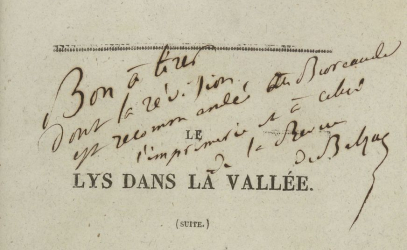 Bon à tirer
dont la révision
est recommandée au Bureau de
l'imprimerie et à celui
de la Revue
de Balzac
LE
LYS DANS LA VALLÉE.
(SUITE.)